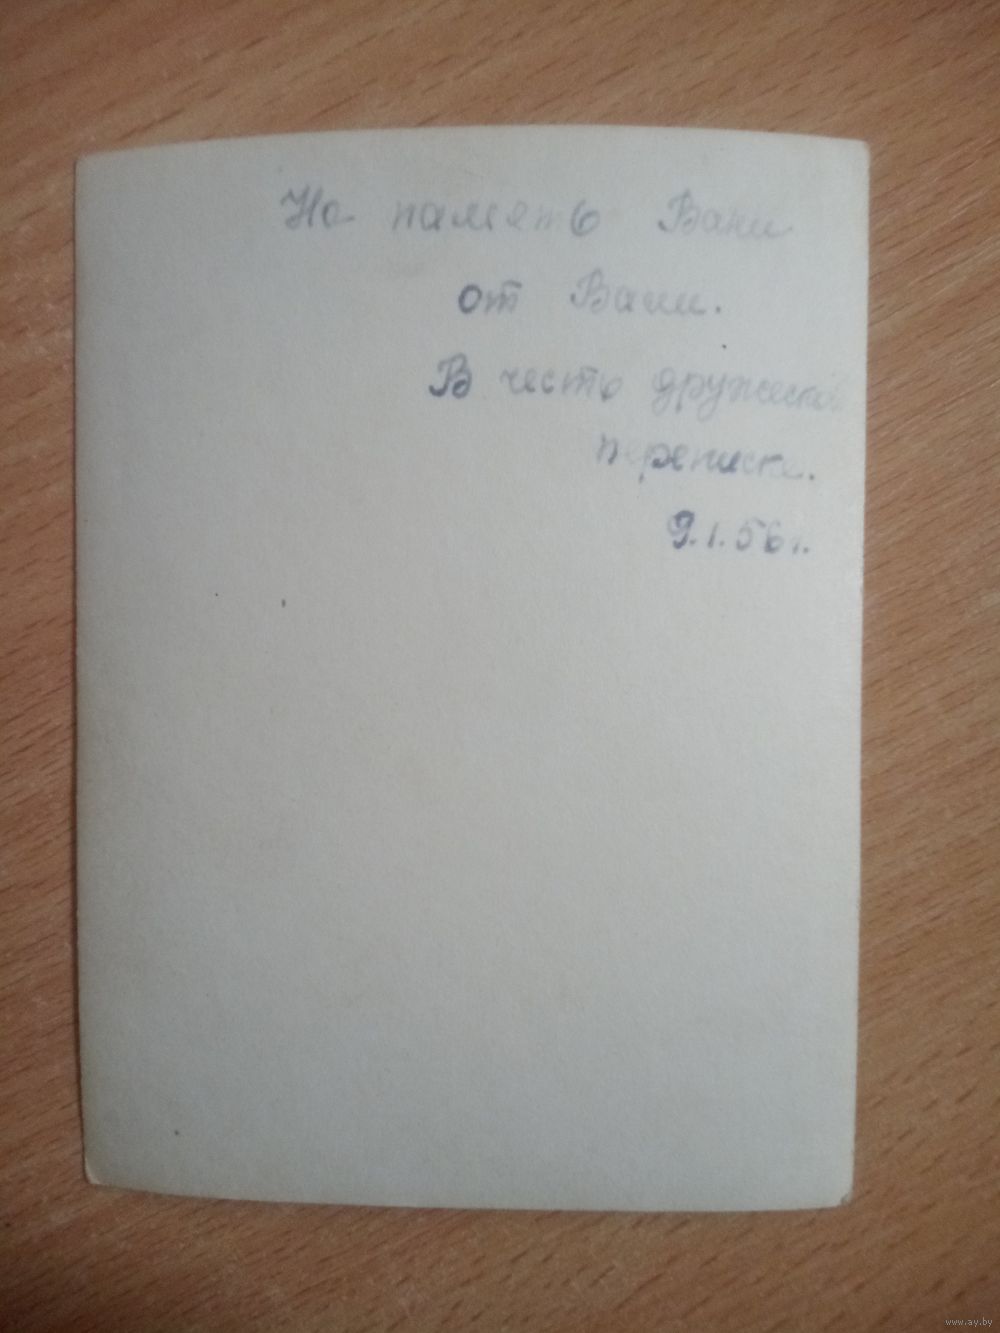 На память Вани
от Вани.
В честь дружеской
переписки.
9.1.56г.
www.ay.by